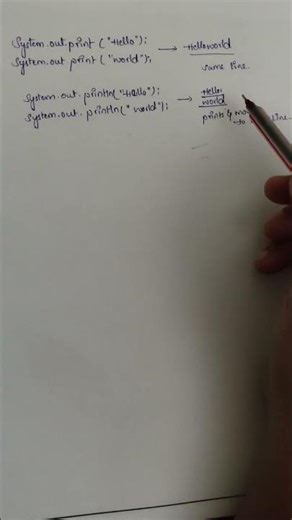 System.out.print ("Hello"); → Helloworld
System.out.print ("world"); same line.
System.out.println("Hello"); → Hello
System.out.println(" world"); world
prints & line.